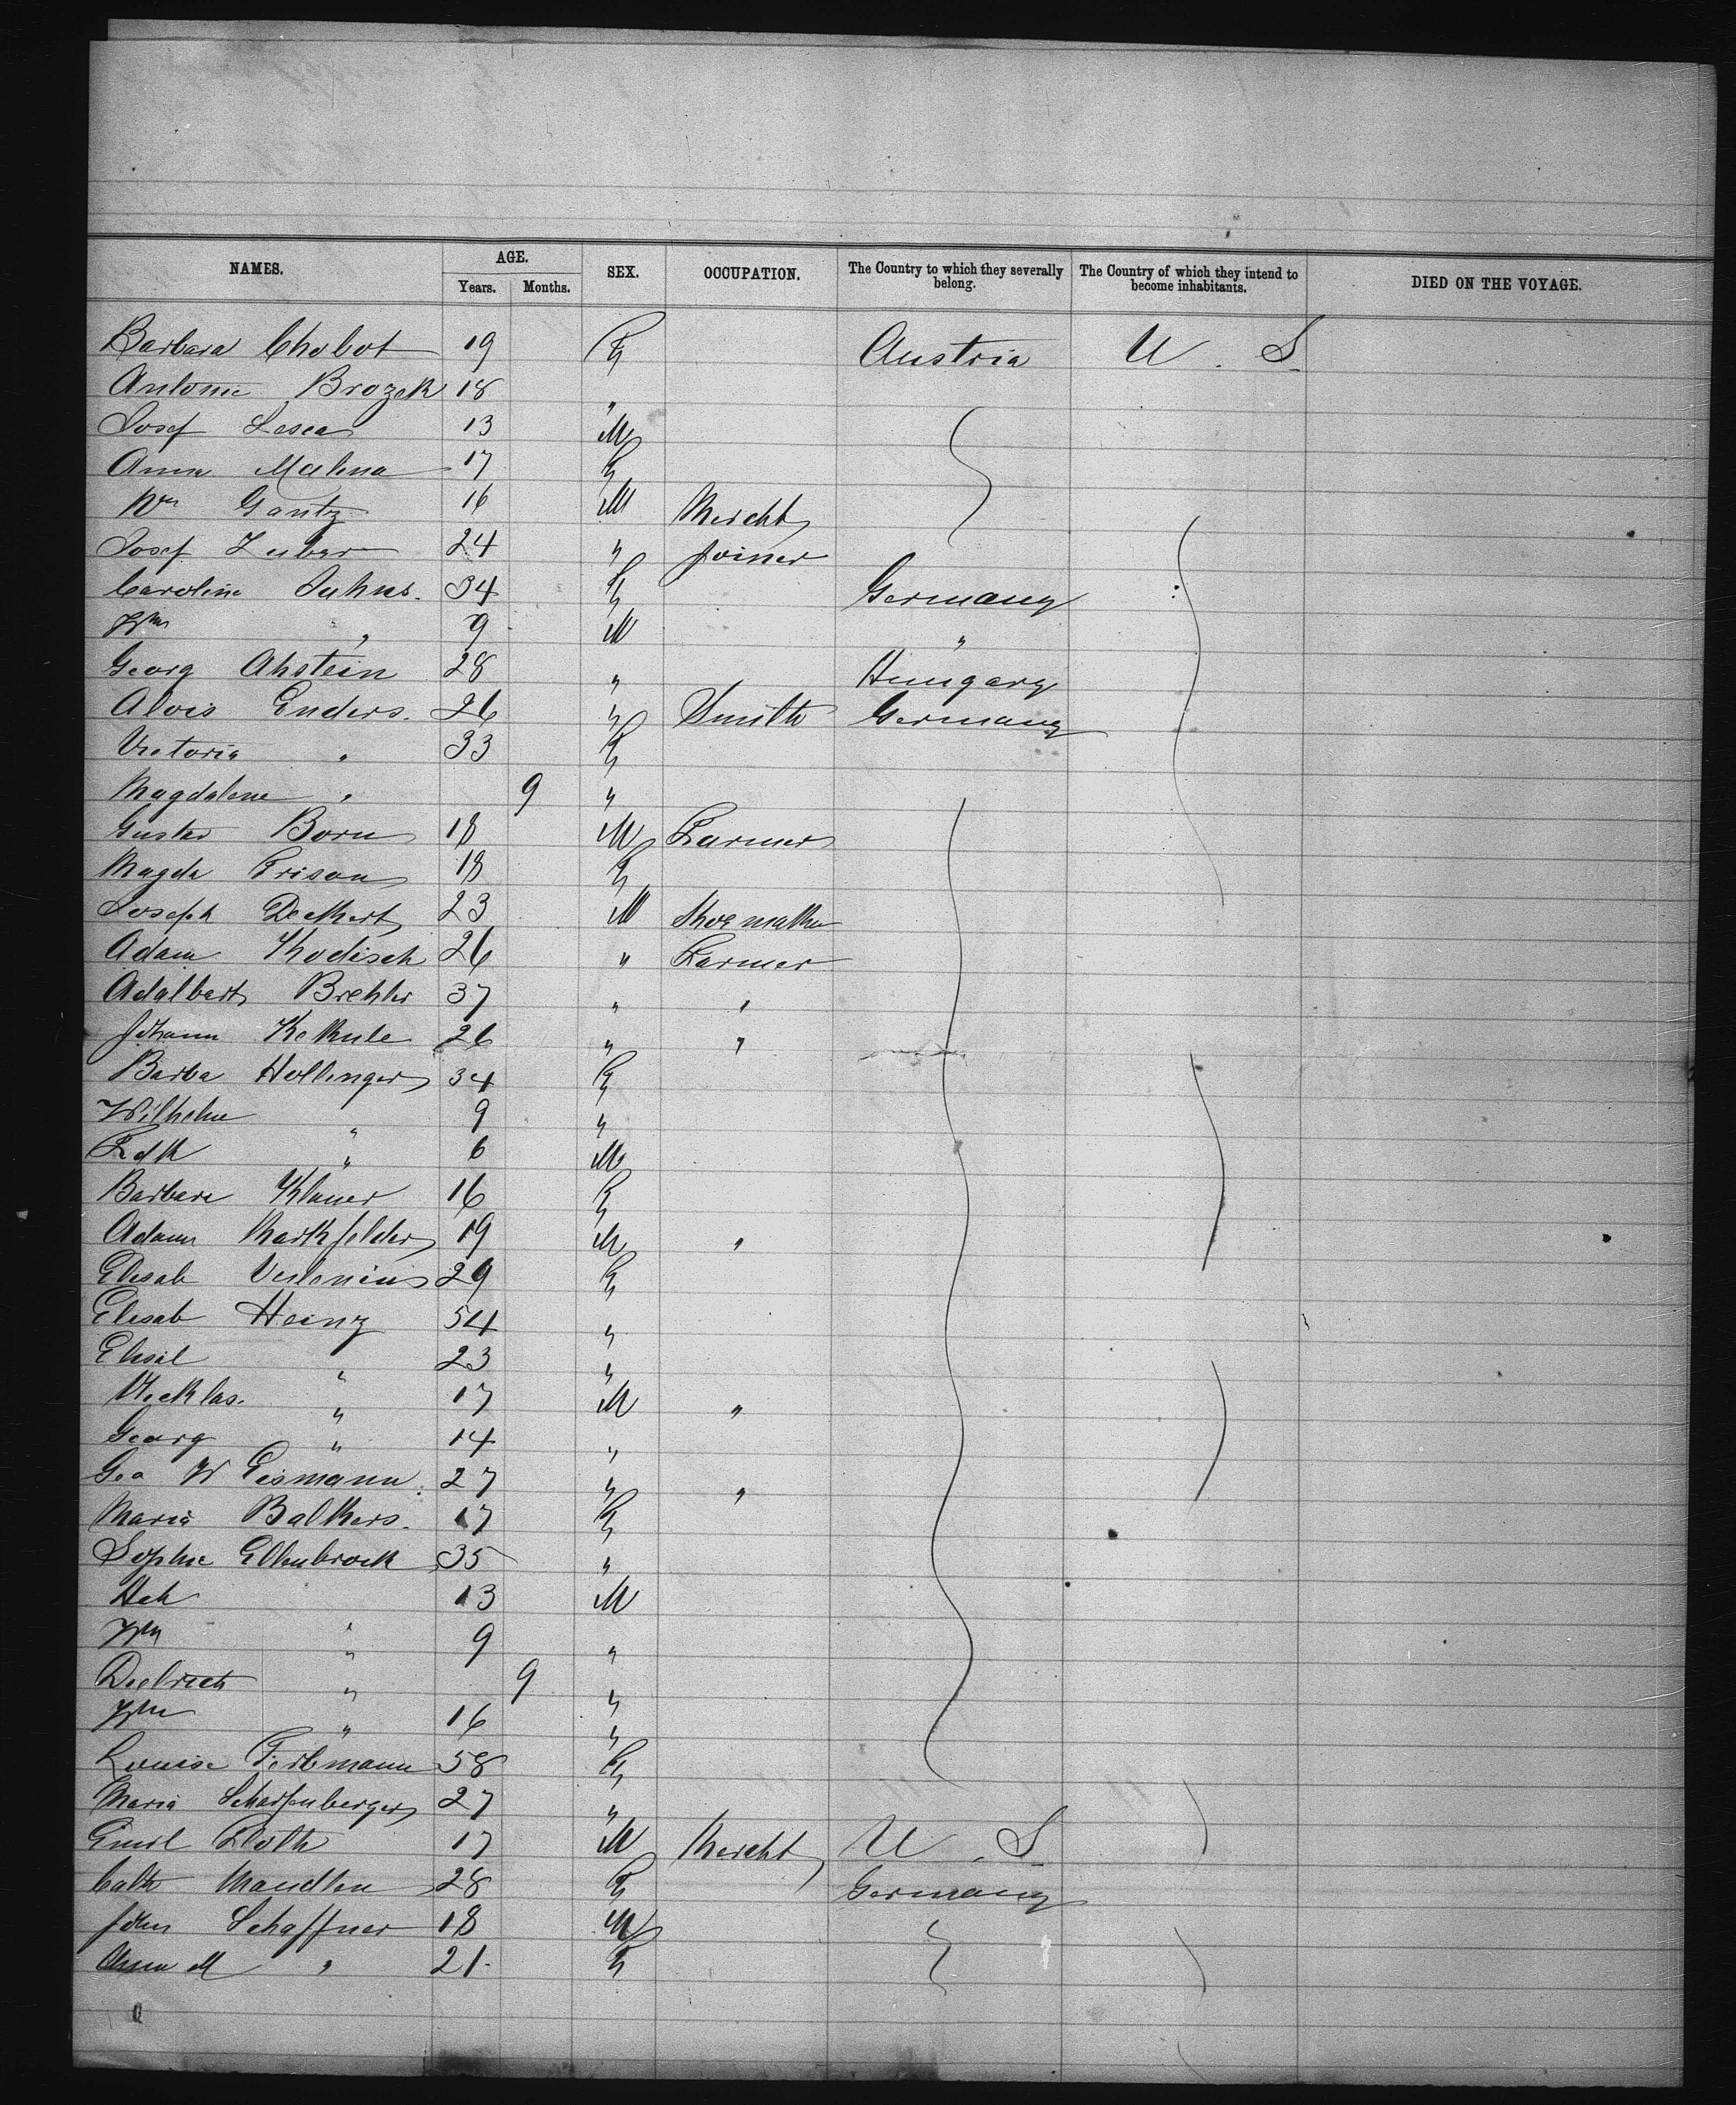 NAMES. AGE. SEX. OCCUPATION. The Country to which they severally belong. The Country of which they intend to become inhabitants. DIED ON THE VOYAGE.
Years. Months.
Barbara Chobot 19 F Austria U. S.
Antonie Brozek 18 "
Josef 13 M
Anna Malina 17 F
Wm Gantz 16 M Mercht
Josef 24 " Joiner
Caroline Jahns. 34 F Germany
Wm " 9 M "
Georg Ahstein 28 " Hungary
Alois Enders. 26 " Smith Germany
Victoria " 33 F
Magdalene " 9 "
Gustav Born 18 M Farmer
Magda Frison 18 F
Joseph Deckert 23 M Shoemaker
Adam Kodisch 26 " Farmer
Adalbert Brehler 37 " "
Johann Kekule 26 " "
Barba Hollenger 34 F
Wilhelm " 9 "
Fdk " 6 M
Barbara Klauer 16 F
Adam Markfelder 19 M "
Elisab 29 F
Elisab Heinz 54 "
" 23 "
" 17 M "
Georg " 14 "
Geo W Eismann. 27 " "
Maria Balkers. 17 F
Sophie Ellenbrock 35 "
Heh " 13 M
Wm " 9 "
Diedrich " 9 "
Wm " 16 "
Louise 58 F
Maria Scharfenberger 27 "
Emil 17 M Mercht U. S.
Cath 28 F Germany
John Schaffner 18 M
Anna M " 21. F